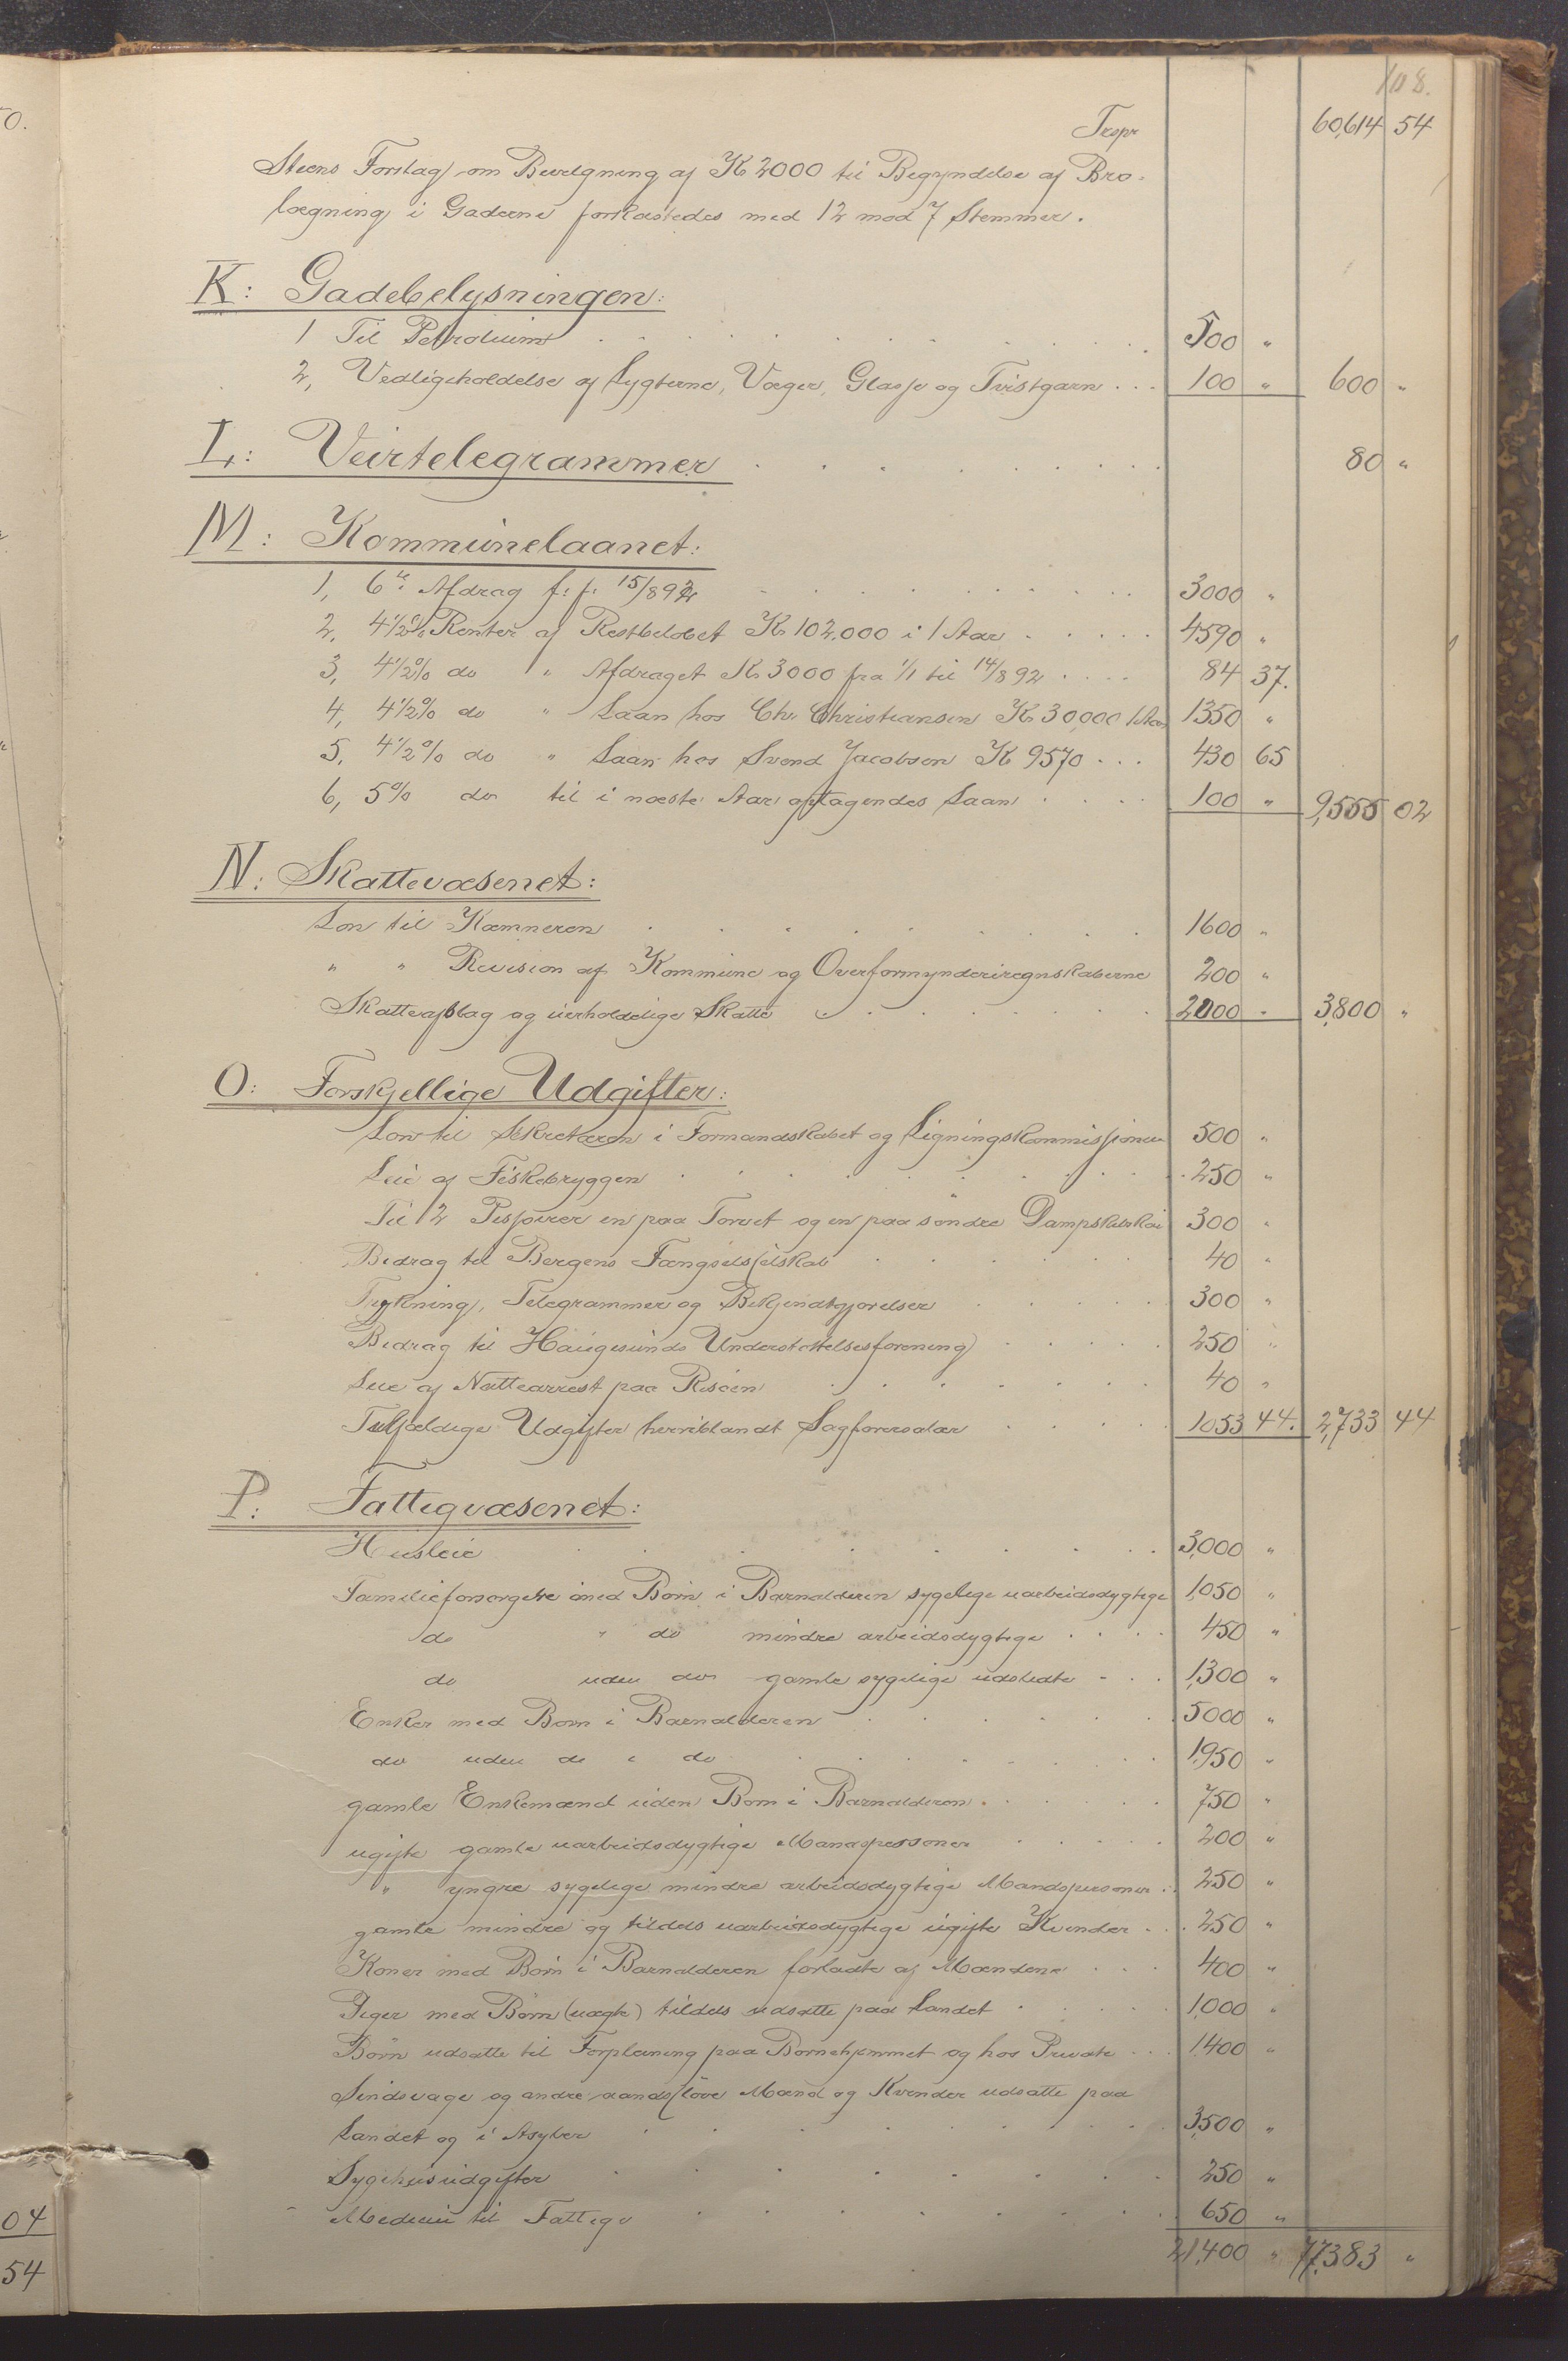 108.
Trspr 60,614 54
Steens Forslag om Bevilgning af K 2000 til Begyndelse af Bro-
lægning i Gaderne forkastedes med 12 mod 7 Stemmer.
K: Gadebelysningen:
1 Til Petroleum 500 "
2, Vedligeholdelse af Lygterne, Væger, Glasse og Tvistgarn 100 " 600 "
L: Veirtelegrammer 80 "
M: Kommunelaanet:
1, 6te Afdrag f: f: 15/8 92 3000 "
2, 4½% Renter af Restbeløbet K 102,000 i 1 Aar 4590 "
3, 4½% do " Afdraget K 3000 fra 1/1 til 14/8 92 84 37.
4, 4½% do " Laan hos Chr. Christiansen K 30,000 1 Aar 1350 "
5, 4½% do " Laan hos Svend Jacobsen K 9570 430 65
6, 5% do til i næste Aar optagendes Laan 100 " 9,555 02
N: Skattevæsenet:
Løn til Kæmneren 1600 "
" " Revision af Kommune og Overformynderiregnskaberne 200 "
Skatteafslag og uerholdelige Skatte 2000 " 3,800 "
O: Forskjellige Udgifter:
Løn til Sekretæren i Formandskabet og Ligningskommissionen 500 "
Leie af Fiskebryggen 250 "
Til 2 Pissoirer en paa Torvet og en paa søndre Dampskibskai 300 "
Bidrag til Bergens Fængselsselskab 40 "
Trykning, Telegrammer og Bekjendtgjørelser 300 "
Bidrag til Haugesunds Understøttelsesforening 250 "
Leie af Nattearrest paa Risøen 40 "
Tilfældige Udgifter herriblandt Sagførersalær 1053 44. 2,733 44
P. Fattigvæsenet:
Husleie 3,000 "
Familieforsørgere med Børn i Barnalderen sygelige uarbeidsdygtige 1,050 "
do " do mindre arbeidsdygtige 450 "
do uden do gamle sygelige udslidte 1,300 "
Enker med Børn i Barnalderen 5000 "
do uden do i do 1,950 "
gamle Enkemænd uden Børn i Barnalderen 750 "
ugifte gamle uarbeidsdygtige Mandspersoner 200 "
" yngre sygelige mindre arbeidsdygtige Mandspersoner 250 "
gamle mindre og tildels uarbeidsdygtige ugifte Kvinder 250 "
Koner med Børn i Barnalderen forladte af Mændene 400 "
Piger med Børn (uægte) tildels udsatte paa Landet 1,000 "
Børn udsatte til Forpleining paa Børnehjemmet og hos Private 1400 "
Sindsvage og andre aandssløve Mænd og Kvinder udsatte paa
Landet og i Asyler 3,500 "
Sygehusudgifter 250 "
Medicin til Fattige 650 "
21,400 " 77,383 "
50.
04
54